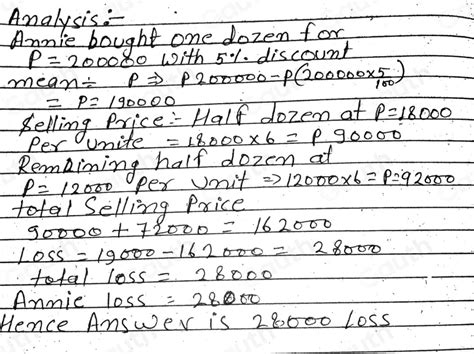 Analysis :-
Annie bought one dozen for
P = 200000 with 5%. discount
mean ÷ P ⇒ P200000-P(200000×5/100)
= P = 190000
Selling Price :- Half dozen at P=18000
Per unite = 18000×6 = P 90000
Remaining half dozen at
P = 12000 Per unit ⇒ 12000×6=P=92000
total Selling Price
90000 + 72000 = 162000
Loss = 19000-162000 = 28000
total loss = 28000
Annie loss = 28000
Hence Answer is 28000 Loss